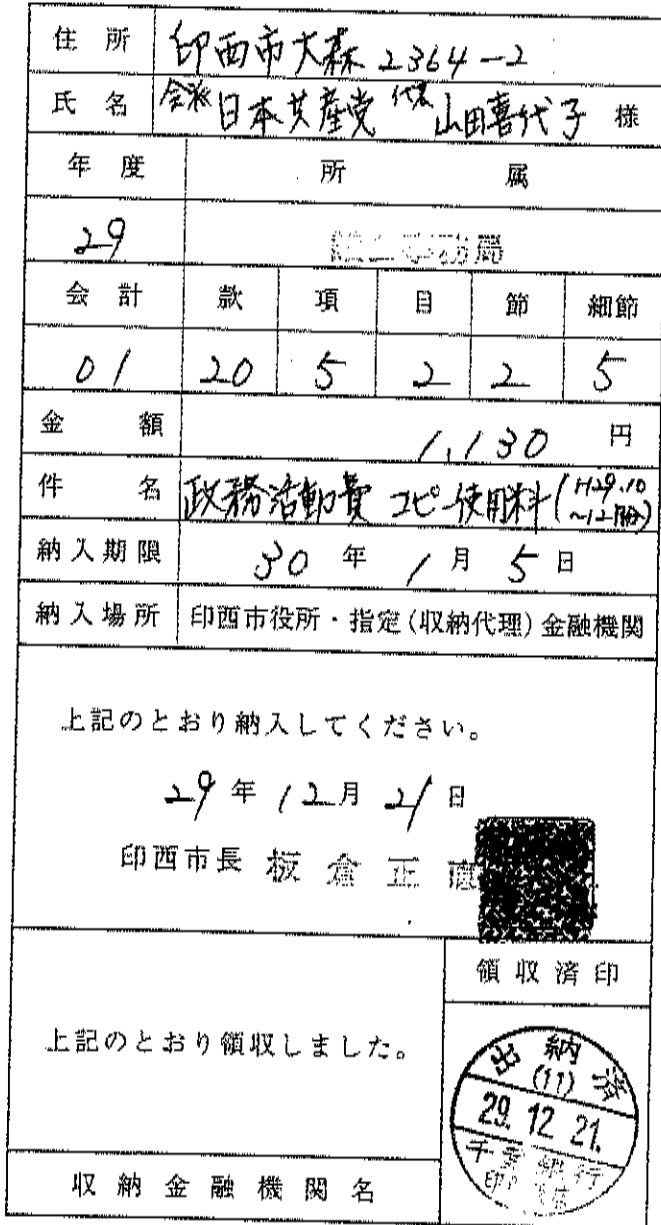 住所 印西市大森2364-2
氏名 会派 日本共産党 代表 山田喜代子 様
年度 所属
29 局
会計 款 項 目 節 細節
01 20 5 2 2 5
金額 1,130 円
件名 政務活動費 コピー使用料(H29.10
~12月分)
納入期限 30年1月5日
納入場所 印西市役所・指定(収納代理)金融機関
上記のとおり納入してください。
29年12月21日
印西市長 板倉正直
領収済印
上記のとおり領収しました。
出納済
(11)
29.12.21.
千葉銀行
収納金融機関名